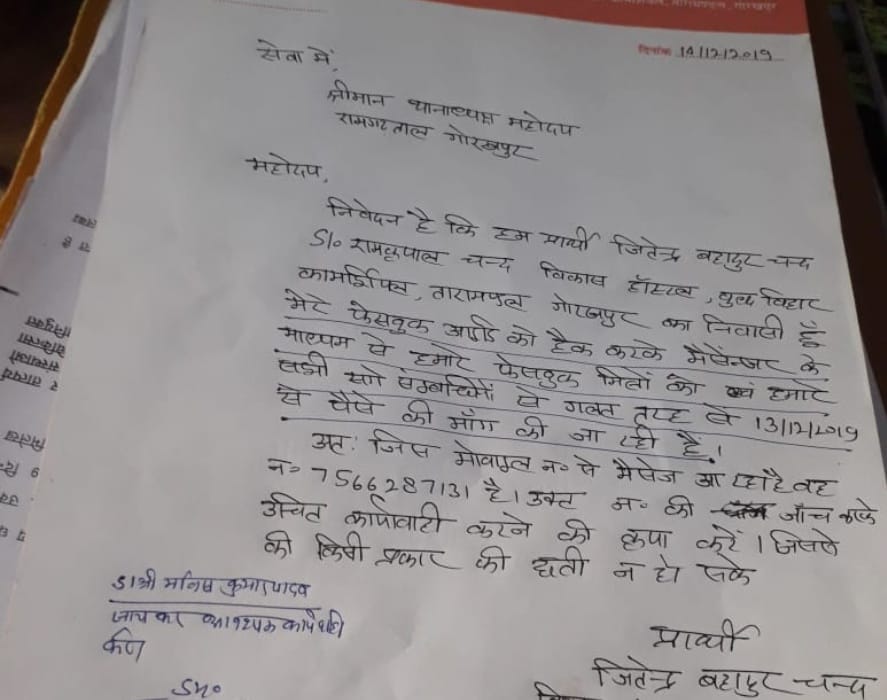 दिनांक 14/12/2019
सेवा में,
श्रीमान थानाध्यक्ष महोदय
रामगढ़ताल गोरखपुर
महोदय,
निवेदन है कि हम प्रार्थी जितेन्द्र बहादुर चन्द
S/o रामकृपाल चन्द विकास हॉस्टल, बुद्ध विहार
कामर्शियल, तारामण्डल गोरखपुर का निवासी हूँ
मेरे फेसबुक आईडी को हैक करके मैसेन्जर के
माध्यम से हमारे फेसबुक मित्रों को एवं हमारे
सभी सगे सम्बन्धियों से गलत तरह से 13/12/2019
से पैसे की माँग की जा रही है।
अतः जिस मोबाइल न० से मैसेज आ रहा है वह
न० 7566287131 है। उक्त न० की जाँच करके
उचित कार्यवाही करने की कृपा करें। जिससे
की किसी प्रकार की क्षती न हो सके
SI श्री मनिष कुमार यादव
जांच कर आवश्यक कार्यवाही
करें
प्रार्थी
जितेन्द्र बहादुर चन्द